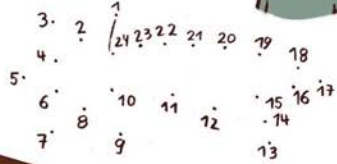 3. 2 1 24 23 22 21 20 19 18
4.
5.
6 10 11 12 15 16 17
7 8 9 14
13